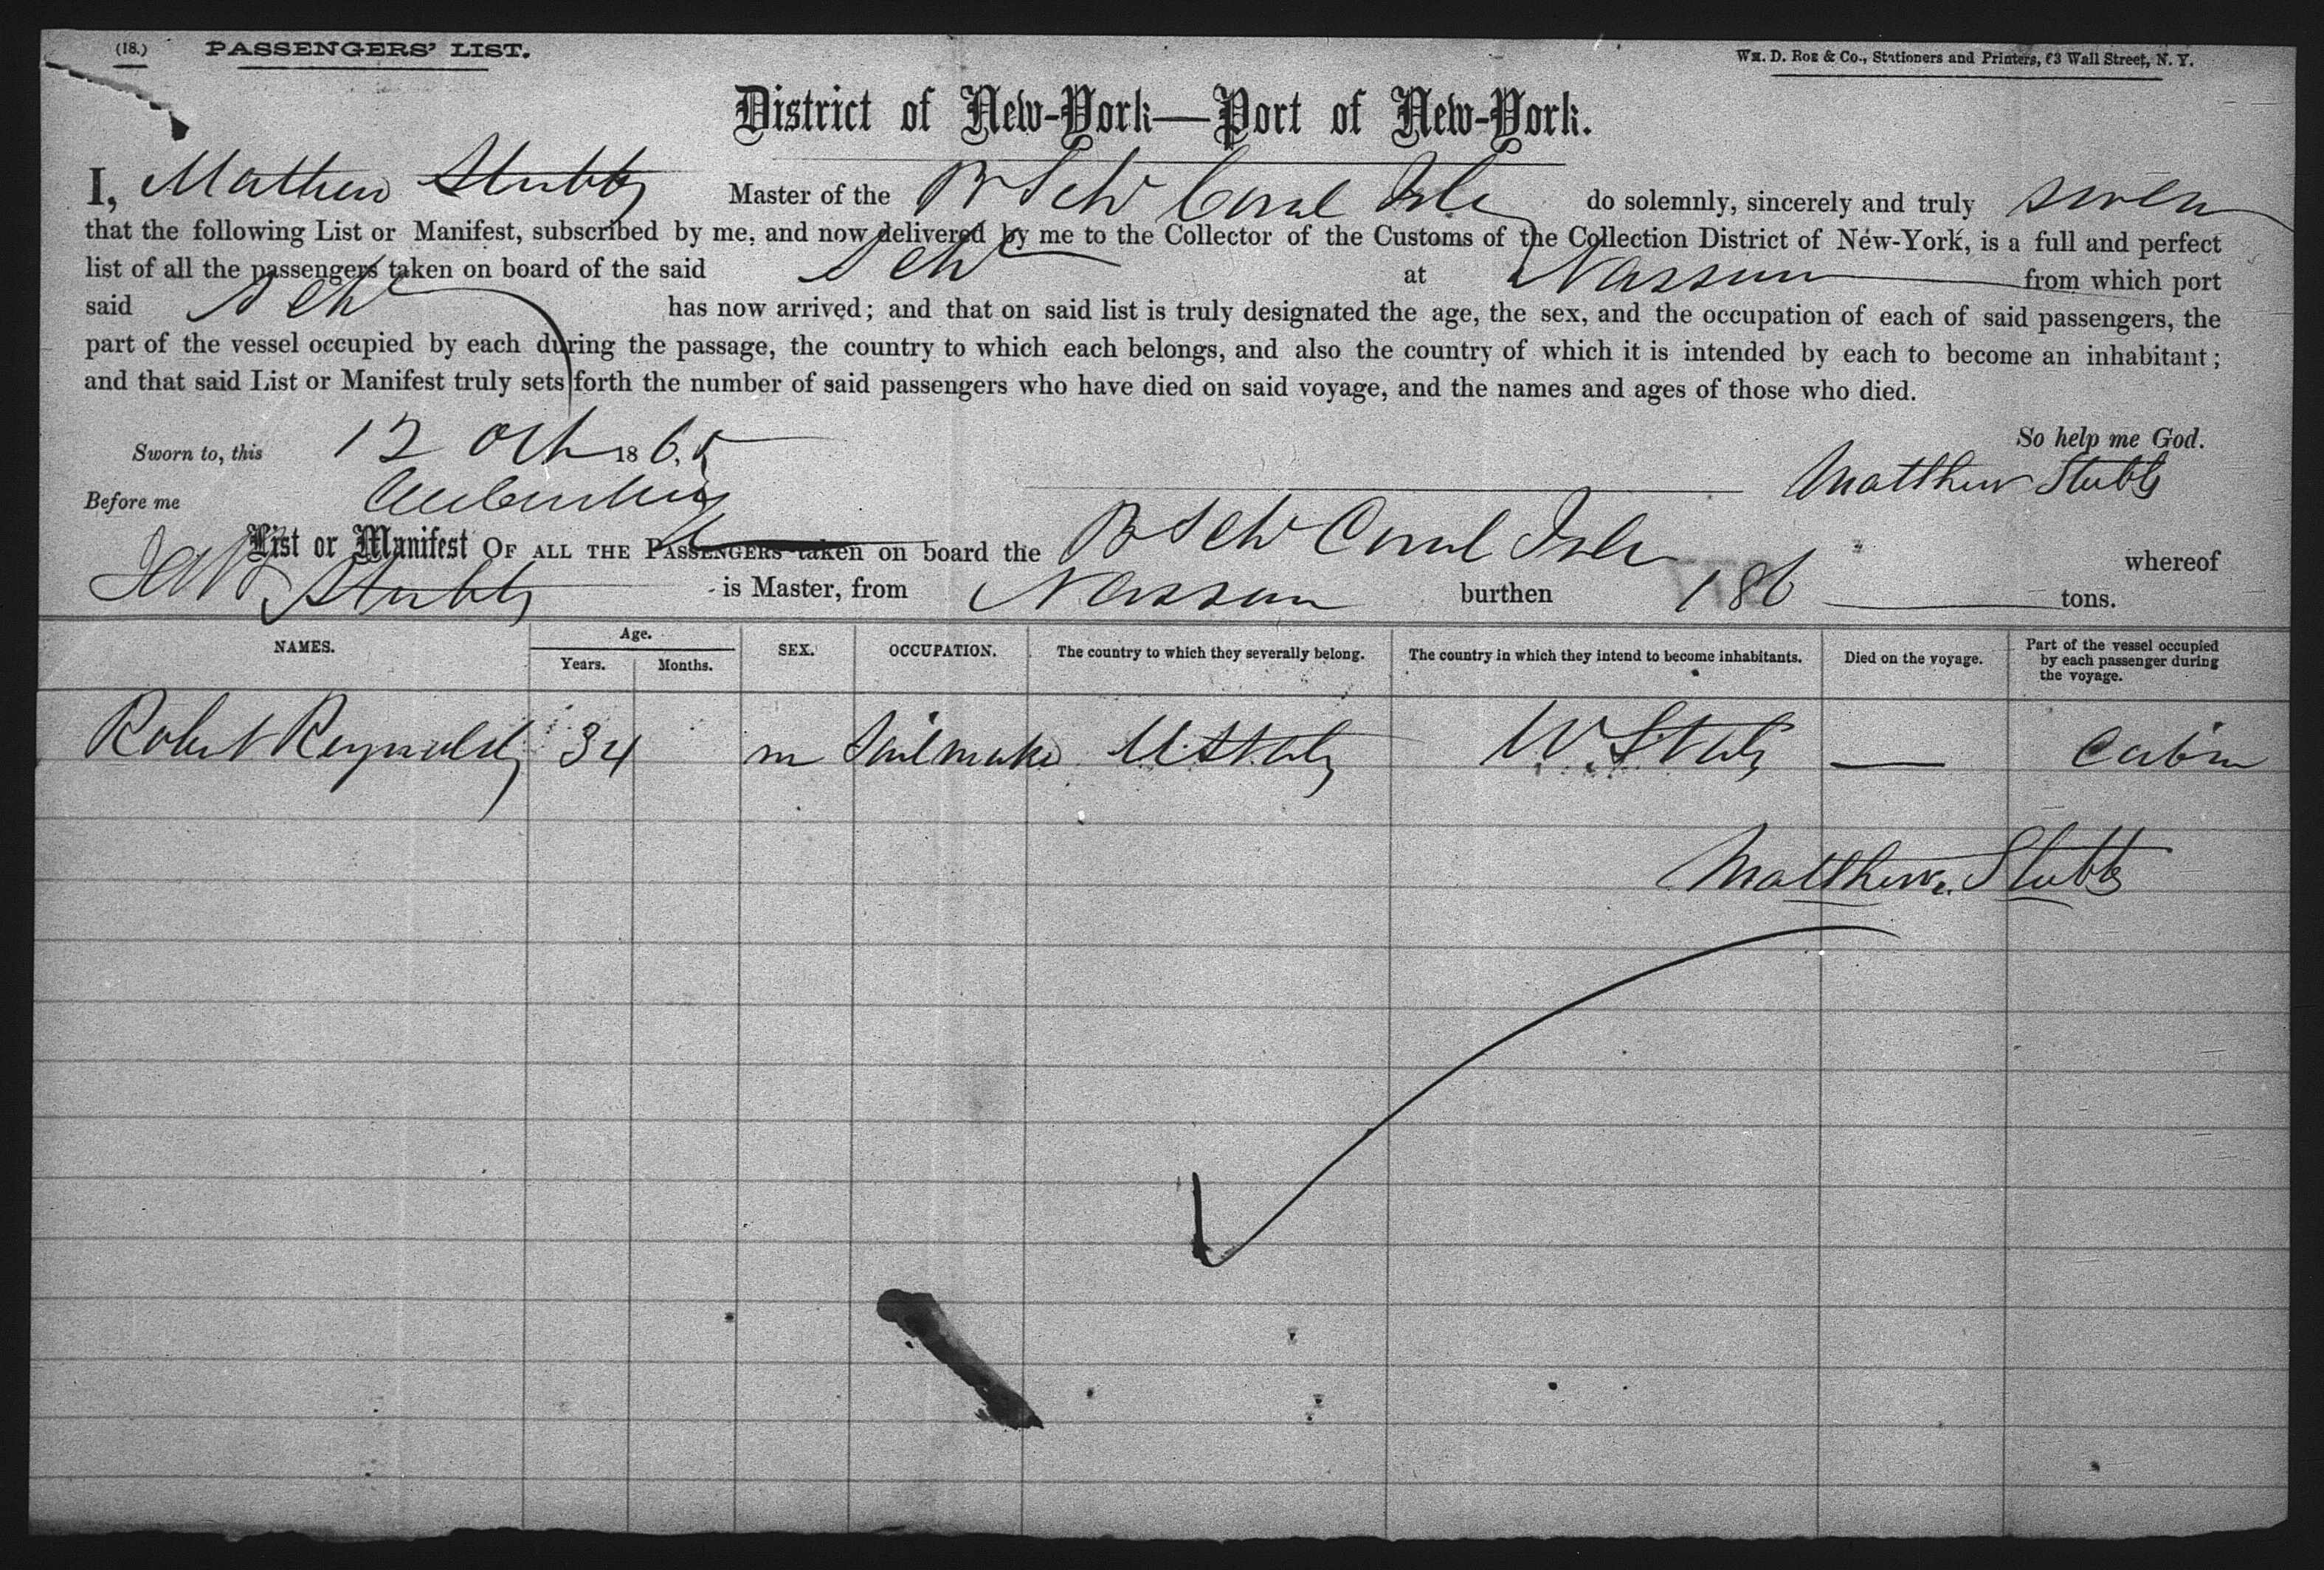 (18.) PASSENGERS' LIST. Wm. D. Roe & Co., Stationers and Printers, 63 Wall Street, N. Y.
District of New-York—Port of New-York.
I, Mathew Stubbs Master of the B Schr Coral Isle do solemnly, sincerely and truly swear
that the following List or Manifest, subscribed by me, and now delivered by me to the Collector of the Customs of the Collection District of New-York, is a full and perfect
list of all the passengers taken on board of the said Schr at Nassau from which port
said Schr has now arrived; and that on said list is truly designated the age, the sex, and the occupation of each of said passengers, the
part of the vessel occupied by each during the passage, the country to which each belongs, and also the country of which it is intended by each to become an inhabitant;
and that said List or Manifest truly sets forth the number of said passengers who have died on said voyage, and the names and ages of those who died.
So help me God.
Sworn to, this 12 Oct 1865
Matthew Stubbs
Before me
List or Manifest OF ALL THE PASSENGERS taken on board the B Schr Coral Isle whereof
Stubbs is Master, from Nassau burthen 186 tons.
NAMES. Age. Years. Months. SEX. OCCUPATION. The country to which they severally belong. The country in which they intend to become inhabitants. Died on the voyage. Part of the vessel occupied by each passenger during the voyage.
Robert Reynolds 34 m Sailmaker U States U States — Cabin
Matthew Stubbs